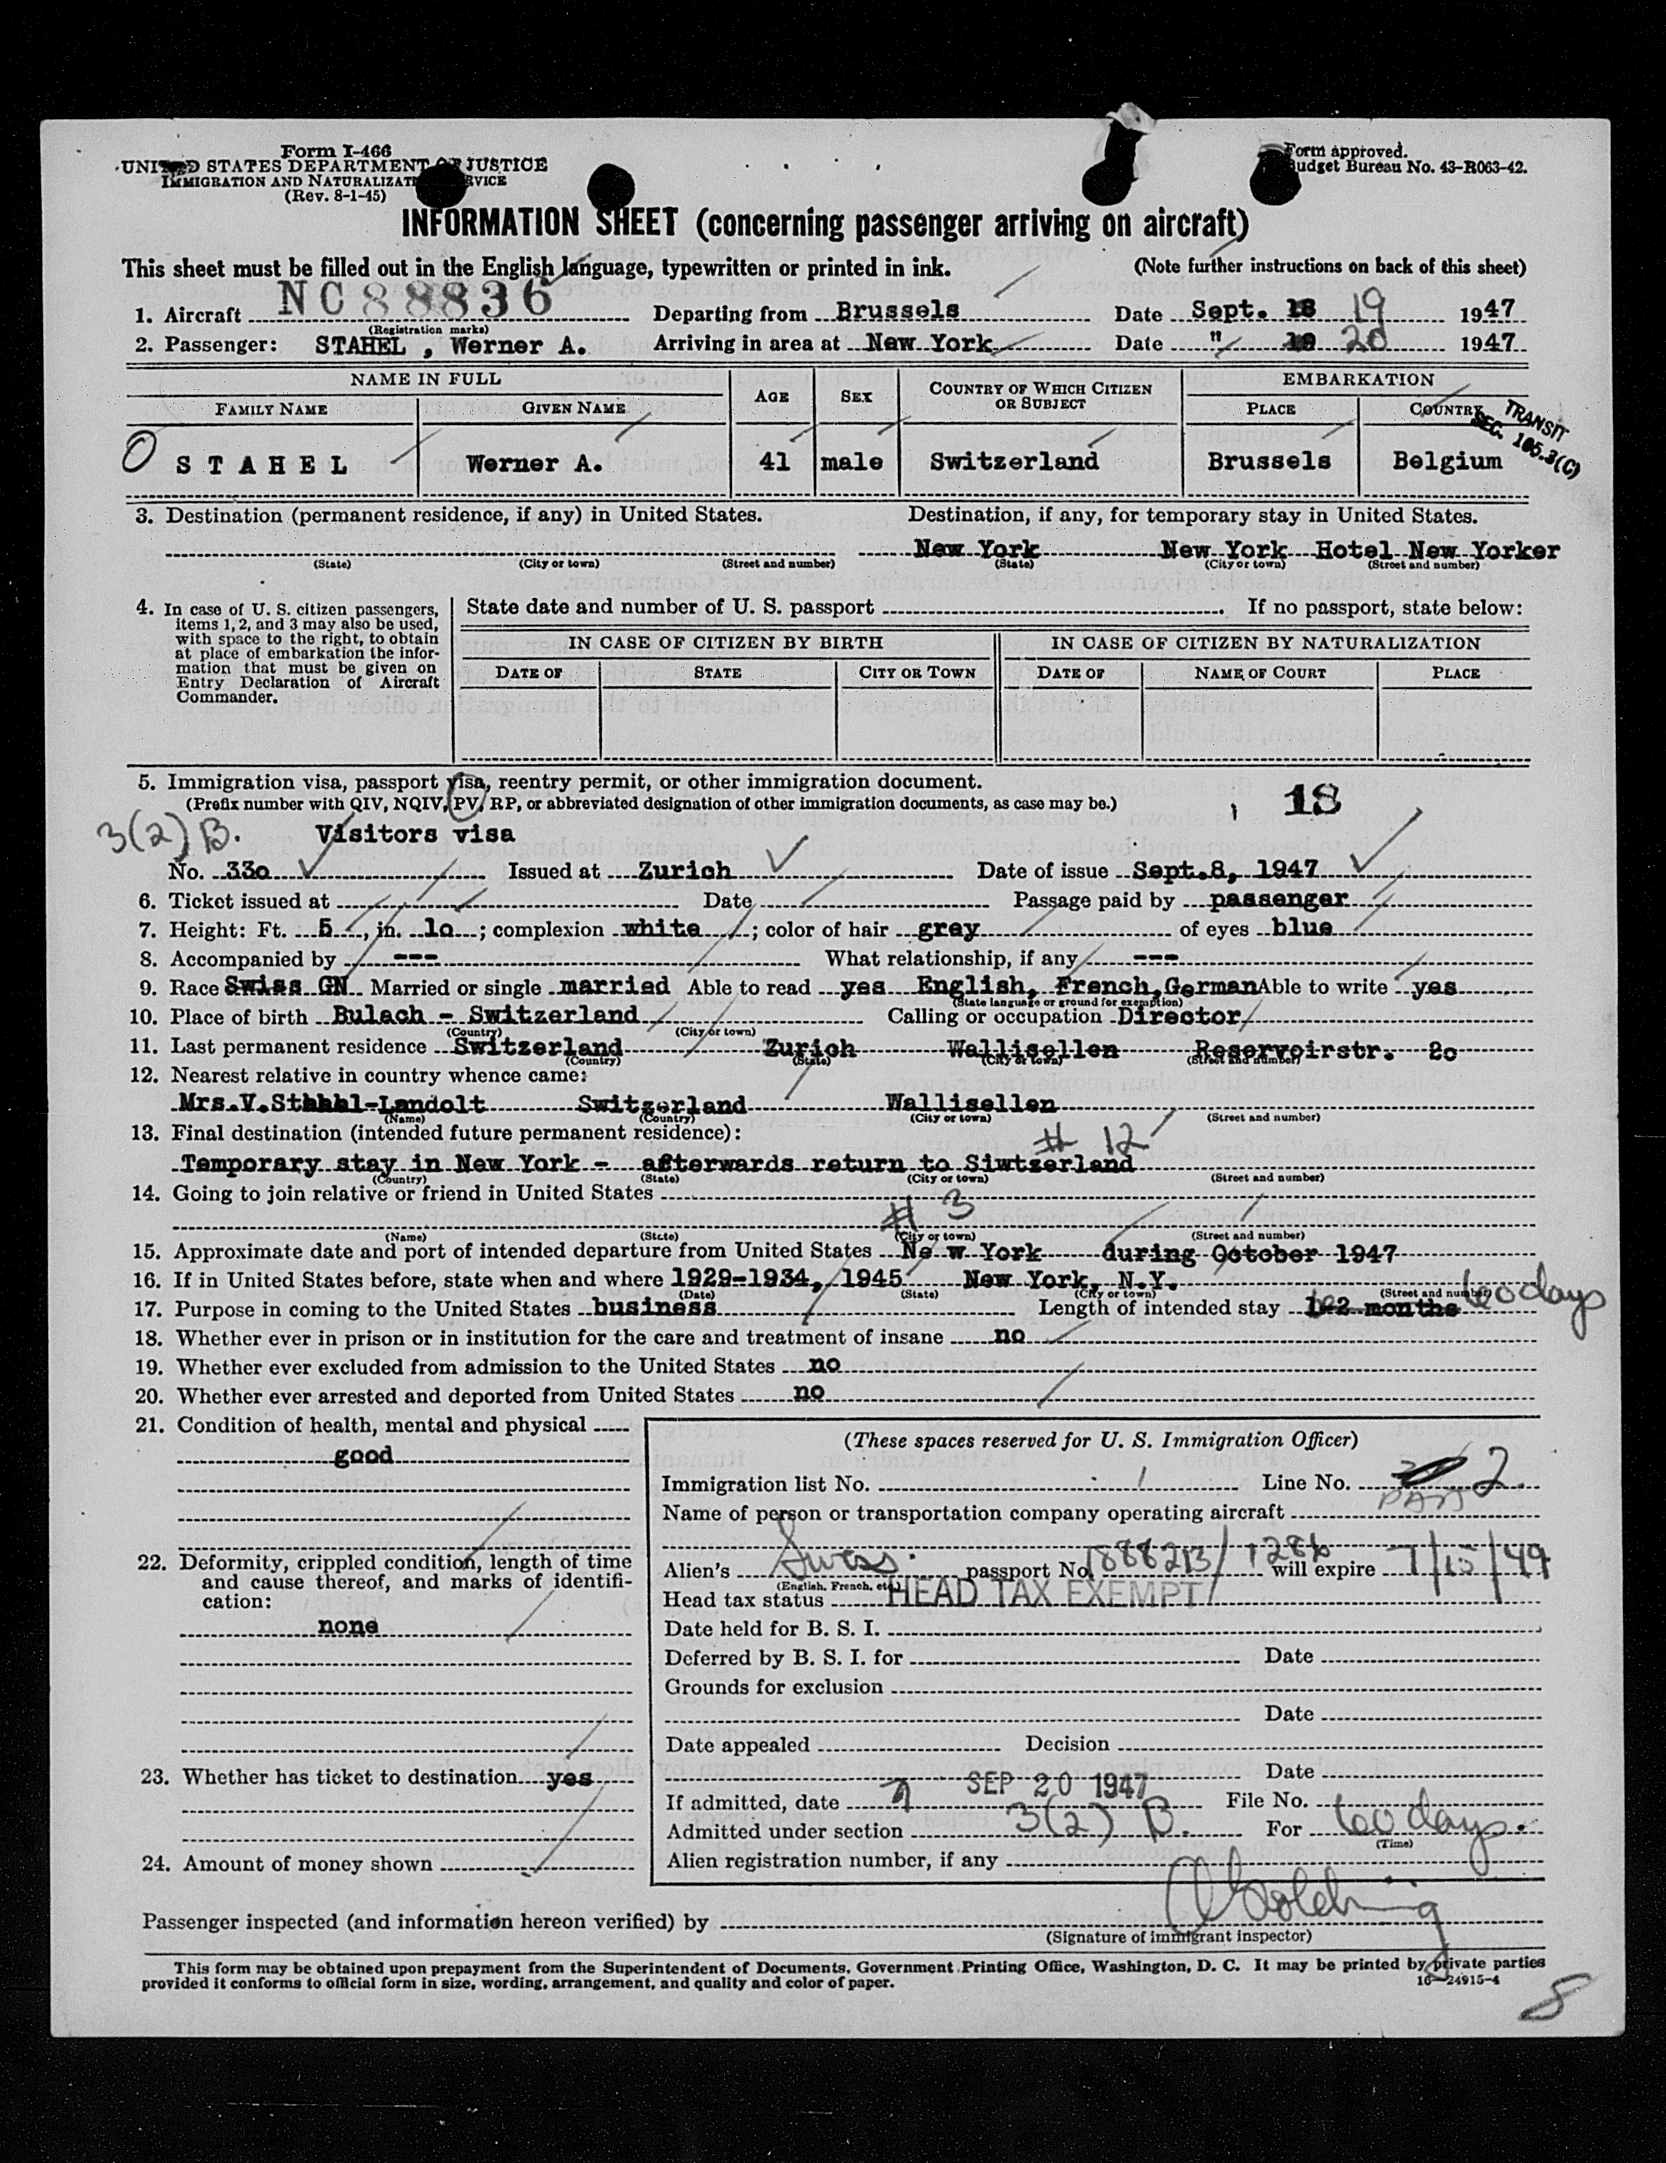 Form I-466
UNITED STATES DEPARTMENT OF JUSTICE
IMMIGRATION AND NATURALIZATION SERVICE
(Rev. 8-1-45)
Form approved.
Budget Bureau No. 43-R063-42.
INFORMATION SHEET (concerning passenger arriving on aircraft)
This sheet must be filled out in the English language, typewritten or printed in ink. (Note further instructions on back of this sheet)
1. Aircraft NC88836 Departing from Brussels Date Sept. 18 19 1947
(Registration marks)
2. Passenger: STAHEL , Werner A. Arriving in area at New York Date " 19 20 1947
NAME IN FULL AGE SEX COUNTRY OF WHICH CITIZEN OR SUBJECT EMBARKATION
FAMILY NAME GIVEN NAME PLACE COUNTRY
TRANSIT
SEC. 165.3(C)
O STAHEL Werner A. 41 male Switzerland Brussels Belgium
3. Destination (permanent residence, if any) in United States. Destination, if any, for temporary stay in United States.
New York New York Hotel New Yorker
(State) (City or town) (Street and number) (State) (City or town) (Street and number)
4. In case of U. S. citizen passengers,
items 1, 2, and 3 may also be used,
with space to the right, to obtain
at place of embarkation the infor-
mation that must be given on
Entry Declaration of Aircraft
Commander.
State date and number of U. S. passport . If no passport, state below:
IN CASE OF CITIZEN BY BIRTH IN CASE OF CITIZEN BY NATURALIZATION
DATE OF STATE CITY OR TOWN DATE OF NAME OF COURT PLACE
5. Immigration visa, passport visa, reentry permit, or other immigration document.
(Prefix number with QIV, NQIV, PV, RP, or abbreviated designation of other immigration documents, as case may be.) 18
3(2) B. Visitors visa
No. 33o Issued at Zurich Date of issue Sept.8, 1947
6. Ticket issued at Date Passage paid by passenger
7. Height: Ft. 5, in. 1o; complexion white; color of hair grey of eyes blue
8. Accompanied by --- What relationship, if any ---
9. Race Swiss GN Married or single married Able to read yes English, French,German Able to write yes
(State language or ground for exemption)
10. Place of birth Bulach - Switzerland Calling or occupation Director
(Country) (City or town)
11. Last permanent residence Switzerland Zurich Wallisellen Reservoirstr. 2o
(Country) (State) (City or town) (Street and number)
12. Nearest relative in country whence came:
Mrs.V.Stahel-Landolt Switzerland Wallisellen
(Name) (Country) (City or town) (Street and number)
13. Final destination (intended future permanent residence): # 12
Temporary stay in New York - afterwards return to Siwtzerland
(Country) (State) (City or town) (Street and number)
14. Going to join relative or friend in United States
# 3
(Name) (State) (City or town) (Street and number)
15. Approximate date and port of intended departure from United States Ne w York during October 1947
16. If in United States before, state when and where 1929-1934, 1945 New York, N.Y.
(Date) (State) (City or town) (Street and number)
17. Purpose in coming to the United States business Length of intended stay 1-2 months 60 days
18. Whether ever in prison or in institution for the care and treatment of insane no
19. Whether ever excluded from admission to the United States no
20. Whether ever arrested and deported from United States no
21. Condition of health, mental and physical
good
22. Deformity, crippled condition, length of time
and cause thereof, and marks of identifi-
cation:
none
23. Whether has ticket to destination yes
24. Amount of money shown
(These spaces reserved for U. S. Immigration Officer)
Immigration list No. 1 Line No. 2
Name of person or transportation company operating aircraft PAN
Alien's Swiss passport No. 888213/1286 will expire 7/15/49
(English, French, etc.)
Head tax status HEAD TAX EXEMPT
Date held for B. S. I.
Deferred by B. S. I. for Date
Grounds for exclusion
Date
Date appealed Decision
Date
If admitted, date SEP 20 1947 File No.
Admitted under section 3(2) B. For 60 days.
(Time)
Alien registration number, if any
Passenger inspected (and information hereon verified) by
(Signature of immigrant inspector)
This form may be obtained upon prepayment from the Superintendent of Documents, Government Printing Office, Washington, D. C. It may be printed by private parties
provided it conforms to official form in size, wording, arrangement, and quality and color of paper. 16—24915-4
8